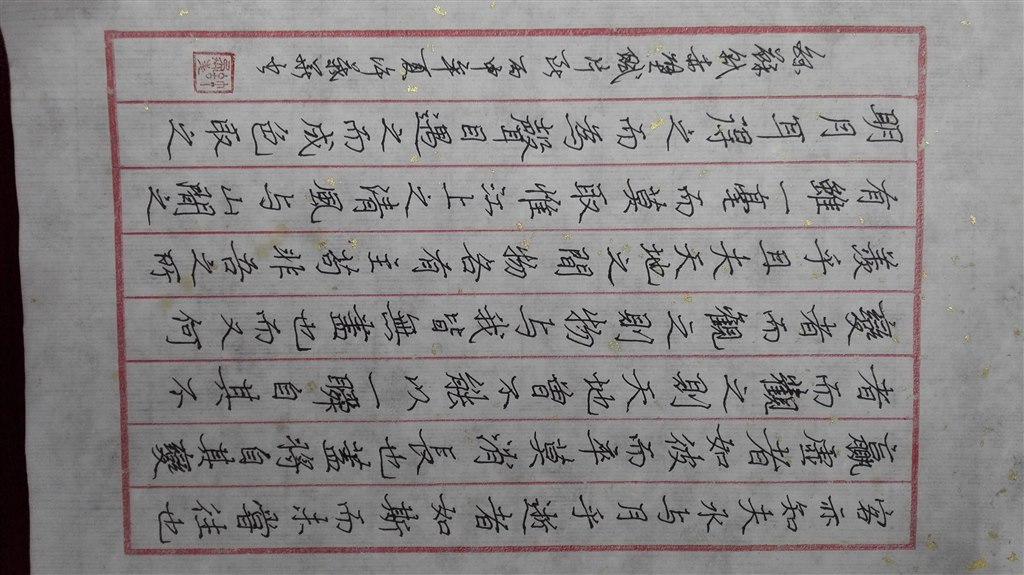 客亦知夫水与月乎逝者如斯而未嘗往也
贏虛者如彼而卒莫消長也蓋將自其變
者而觀之則天地曾不能以一瞬自其不
變者而觀之則物与我皆無盡也而又何
羨乎且夫天地之間物各有主苟非吾之所
有雖一毫而莫取惟江上之清風与山間之
明月耳得之而為聲目遇之而成色取之
錄蘇軾赤壁賦片段丙申年夏許書